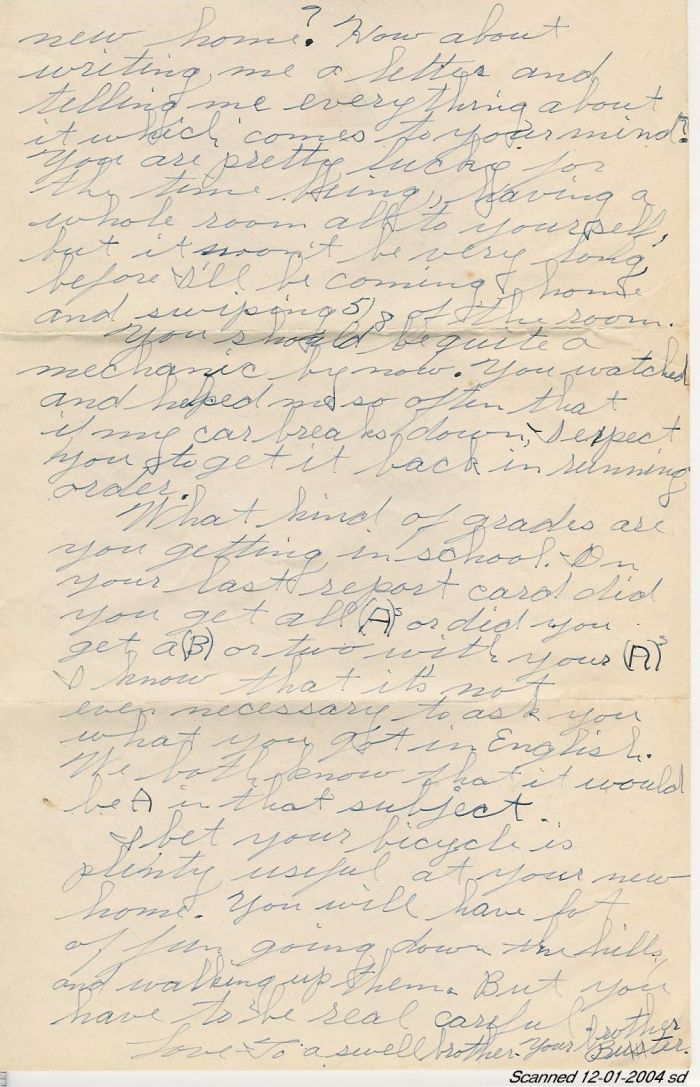 new home? How about
writing me a letter and
telling me everything about
it which comes to your mind?
You are pretty lucky for
the time being, having a
whole room all to yourself,
but it won't be very long
before I'll be coming home
and swiping 5/8 of the room.
You should be quite a
mechanic by now. You watched
and helped me so often that
if my car breaks down, I expect
you to get it back in running
order.
What kind of grades are
you getting in school. On
your last report card did
you get all (A)s or did you
get a (B) or two with your (A)s
I know that it's not
even necessary to ask you
what you got in English.
We both know that it would
be A in that subject.
I bet your bicycle is
plenty useful at your new
home. You will have lot
of fun going down the hills,
and walking up them. But you
have to be real careful
Love to a swell brother. Your brother
Buster.
Scanned 12-01-2004 sd